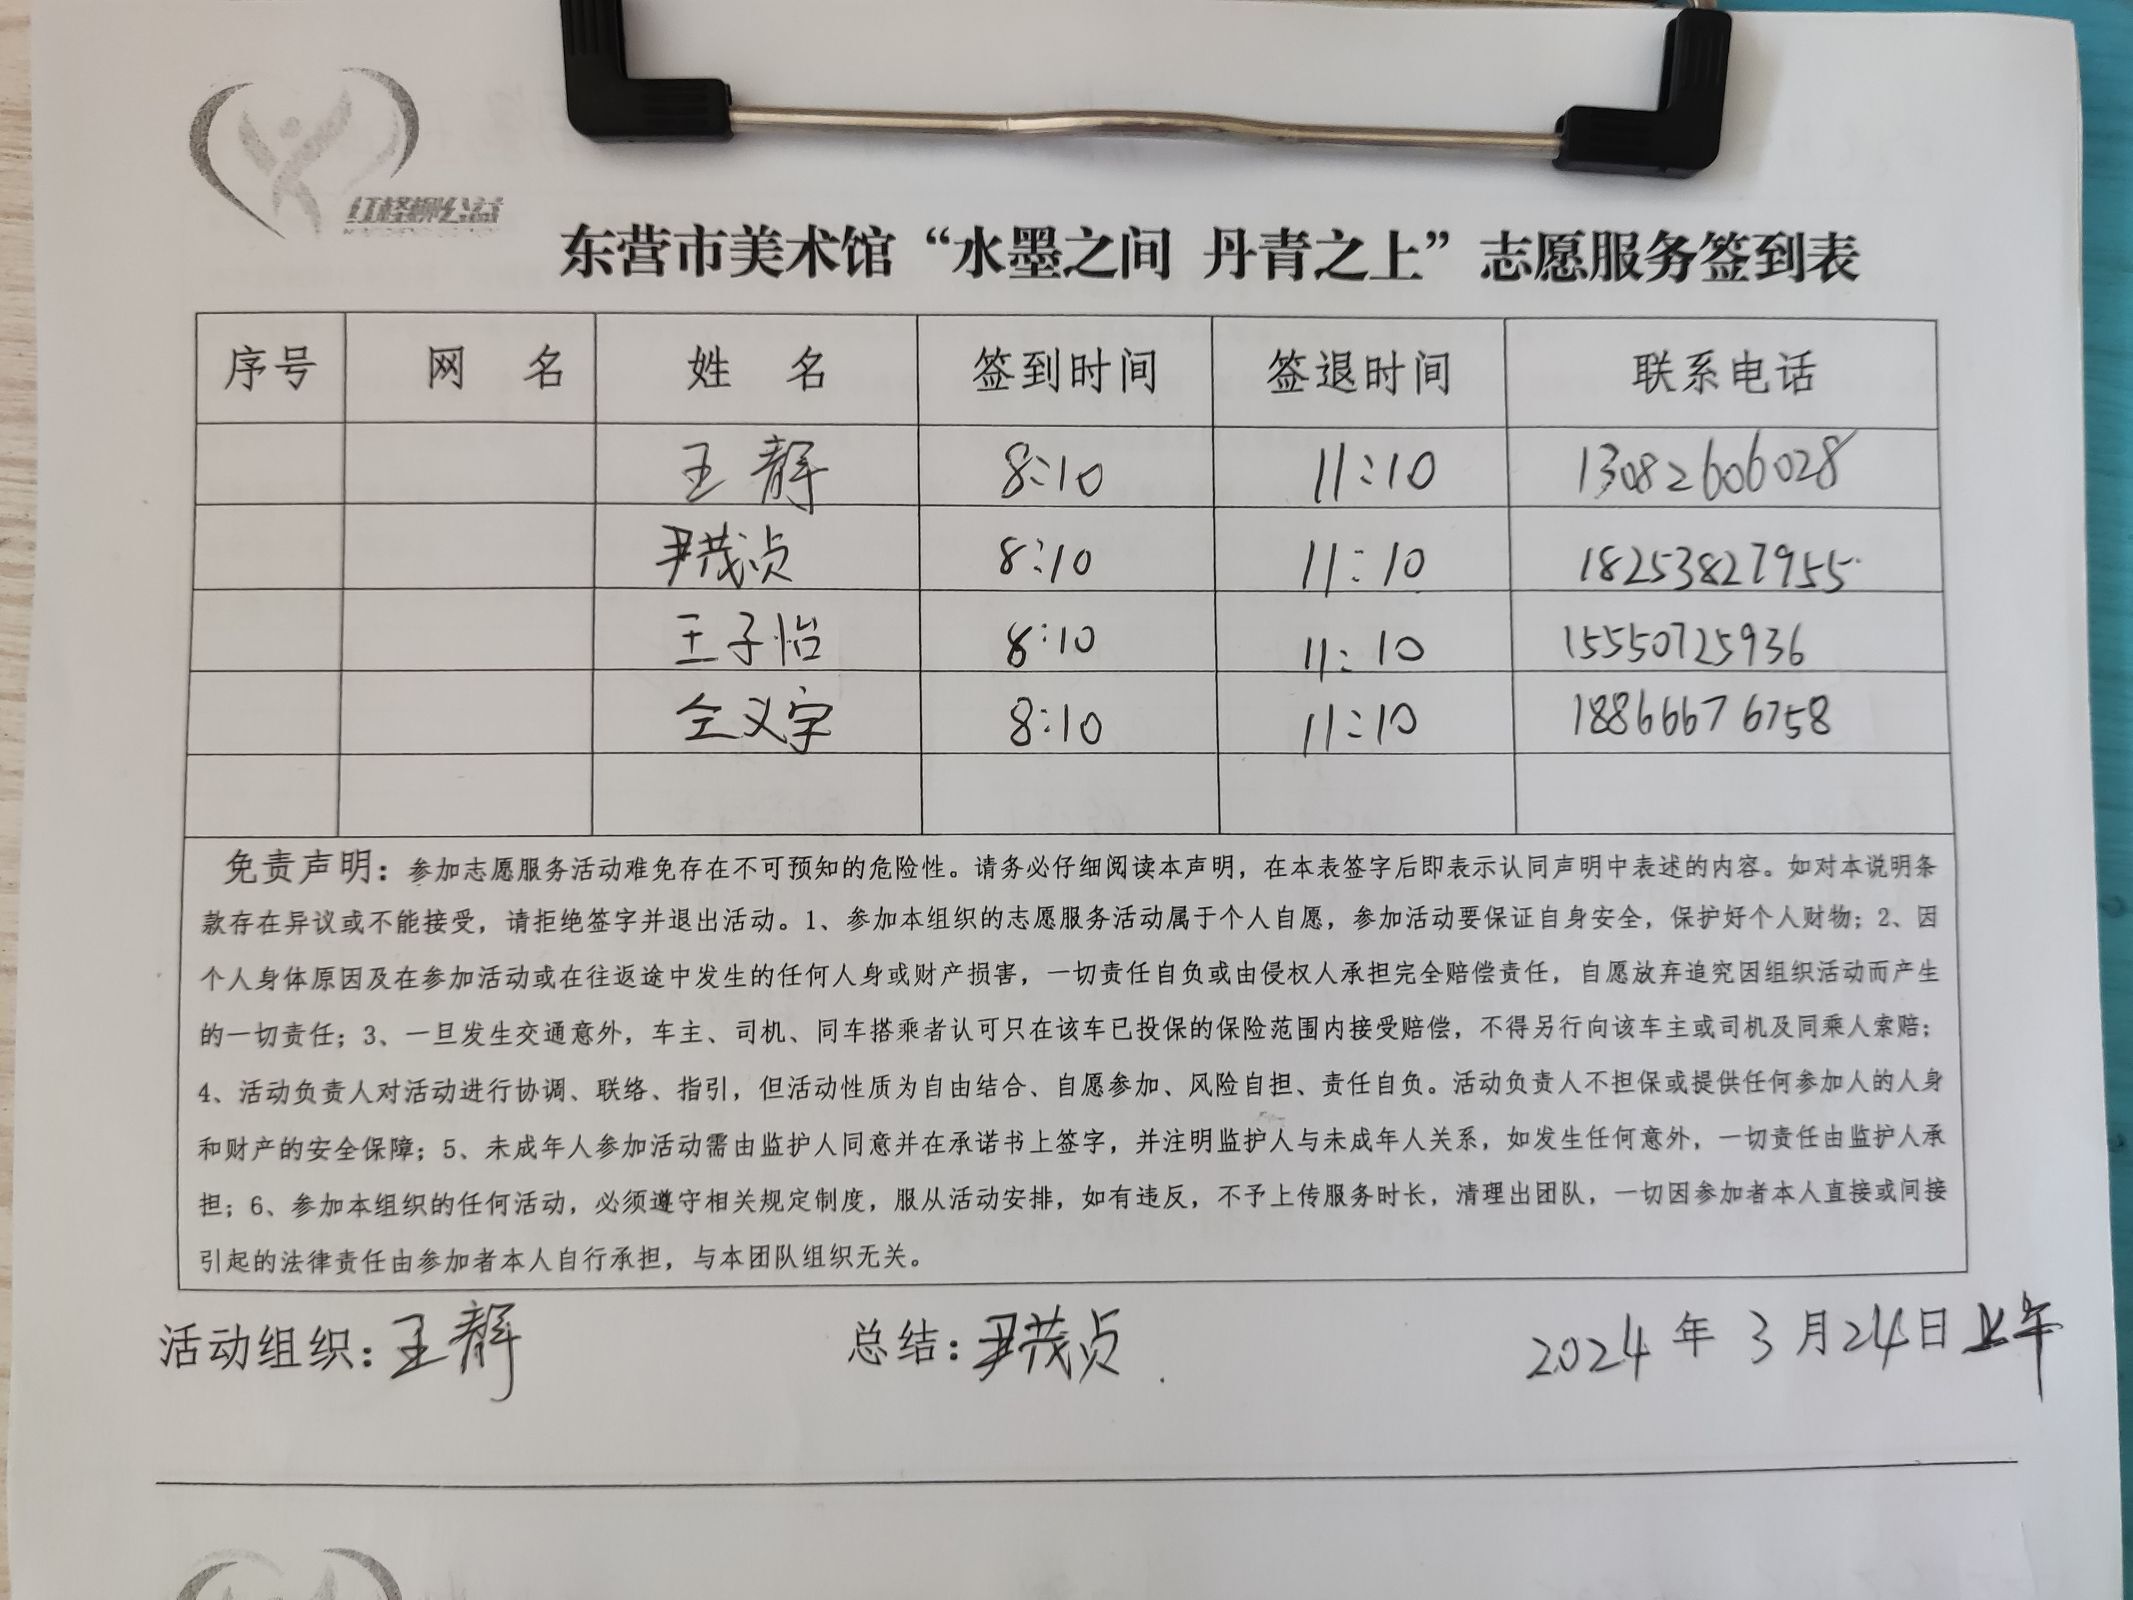 红柽柳公益
东营市美术馆“水墨之间 丹青之上”志愿服务签到表
序号 网 名 姓 名 签到时间 签退时间 联系电话
王静 8:10 11:10 13082606028
尹茂贞 8:10 11:10 18253827955
王子怡 8:10 11:10 15550725936
仝义宇 8:10 11:10 18866676758
免责声明：参加志愿服务活动难免存在不可预知的危险性。请务必仔细阅读本声明，在本表签字后即表示认同声明中表述的内容。如对本说明条
款存在异议或不能接受，请拒绝签字并退出活动。1、参加本组织的志愿服务活动属于个人自愿，参加活动要保证自身安全，保护好个人财物；2、因
个人身体原因及在参加活动或在往返途中发生的任何人身或财产损害，一切责任自负或由侵权人承担完全赔偿责任，自愿放弃追究因组织活动而产生
的一切责任；3、一旦发生交通意外，车主、司机、同车搭乘者认可只在该车已投保的保险范围内接受赔偿，不得另行向该车主或司机及同乘人索赔；
4、活动负责人对活动进行协调、联络、指引，但活动性质为自由结合、自愿参加、风险自担、责任自负。活动负责人不担保或提供任何参加人的人身
和财产的安全保障；5、未成年人参加活动需由监护人同意并在承诺书上签字，并注明监护人与未成年人关系，如发生任何意外，一切责任由监护人承
担；6、参加本组织的任何活动，必须遵守相关规定制度，服从活动安排，如有违反，不予上传服务时长，清理出团队，一切因参加者本人直接或间接
引起的法律责任由参加者本人自行承担，与本团队组织无关。
活动组织：王静 总结：尹茂贞 2024年3月24日上午